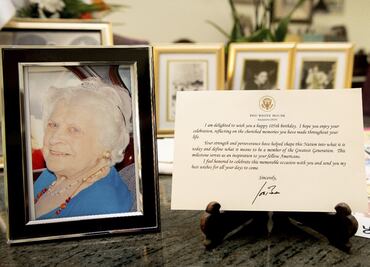 THE WHITE HOUSE
WASHINGTON
I am delighted to wish you a happy 105th birthday. I hope you enjoy your
celebration, reflecting on the cherished memories you have made throughout your
life.
Your strength and perseverance have helped shape this Nation into what it is
today and define what it means to be a member of the Greatest Generation. This
milestone serves as an inspiration to your fellow Americans.
I feel honored to celebrate this memorable occasion with you and send you my
best wishes for all your days to come.
Sincerely,